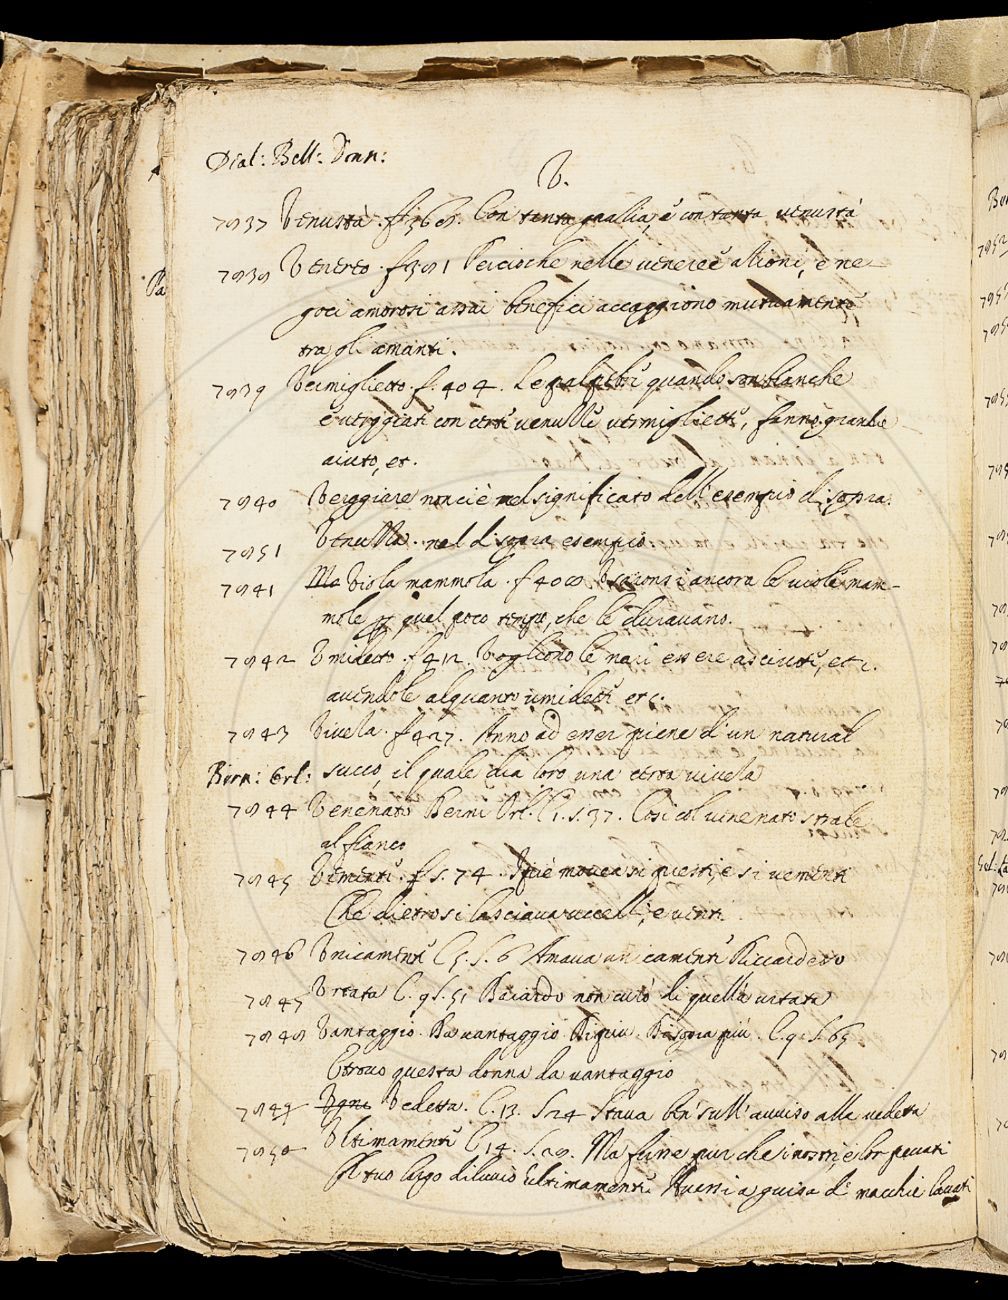 Dial: Bell: Donn:
V.
7937 Venustà. f. 369. Con tanta grazia, e con tanta venustà
7938 Venereo. f. 391 Percioche nelle veneree attioni, e ne
goci amorosi assai benefici accaggiono mutuamente
tra gli amanti.
7939 Vermiglietto. f. 404. Le palpebre quando son bianche
e verggiate con certe venulle vermigliette, fanno grande
aiuto, et.
7940 Verggiare non ci è nel significato dell' esempio di sopra.
7951 Venulla. nel di sopra esempio.
7941 Ma Viola mammola. f. 408 ancora le viole mam-
mole per quel poco tempo, che le duravano.
7942 Umidetto. f. 412. Vogliono le nari essere asciutte, etc.
avendole alquanto umidette etc.
7943 Vivela. f. 427. Anno ad esser piene d'un natural
Bern: Orl: succo, il quale dia loro una certa vivela
7944 Venenato Berni Orl. C. 1. s. 37. Così col venenato strale
al fianco
7945 Vementi. f. s. 74. mover si questi, e si vementi
Che dietro si lasciava uccelli, e venti
7946 Unicamente C. 5. s. 6 Amava unicamente Ricciardetto
7947 Urtata C. 9 s. 51 Baiardo non curò di quella urtata
7948 Vantaggio. Da vantaggio Di più. Da sopra più. C. 9. s. 65
E trovo questa donna da vantaggio
7949 Vedetta. C. 13. s. 24 Stava ben sull' avviso alla vedetta
7950 Ultimamente C. 14. s. 29. Ma furne pur che i nostri, e lor peccati
Il tuo largo diluvio ultimamente. Avessi a guisa di macchie lavati
Pa